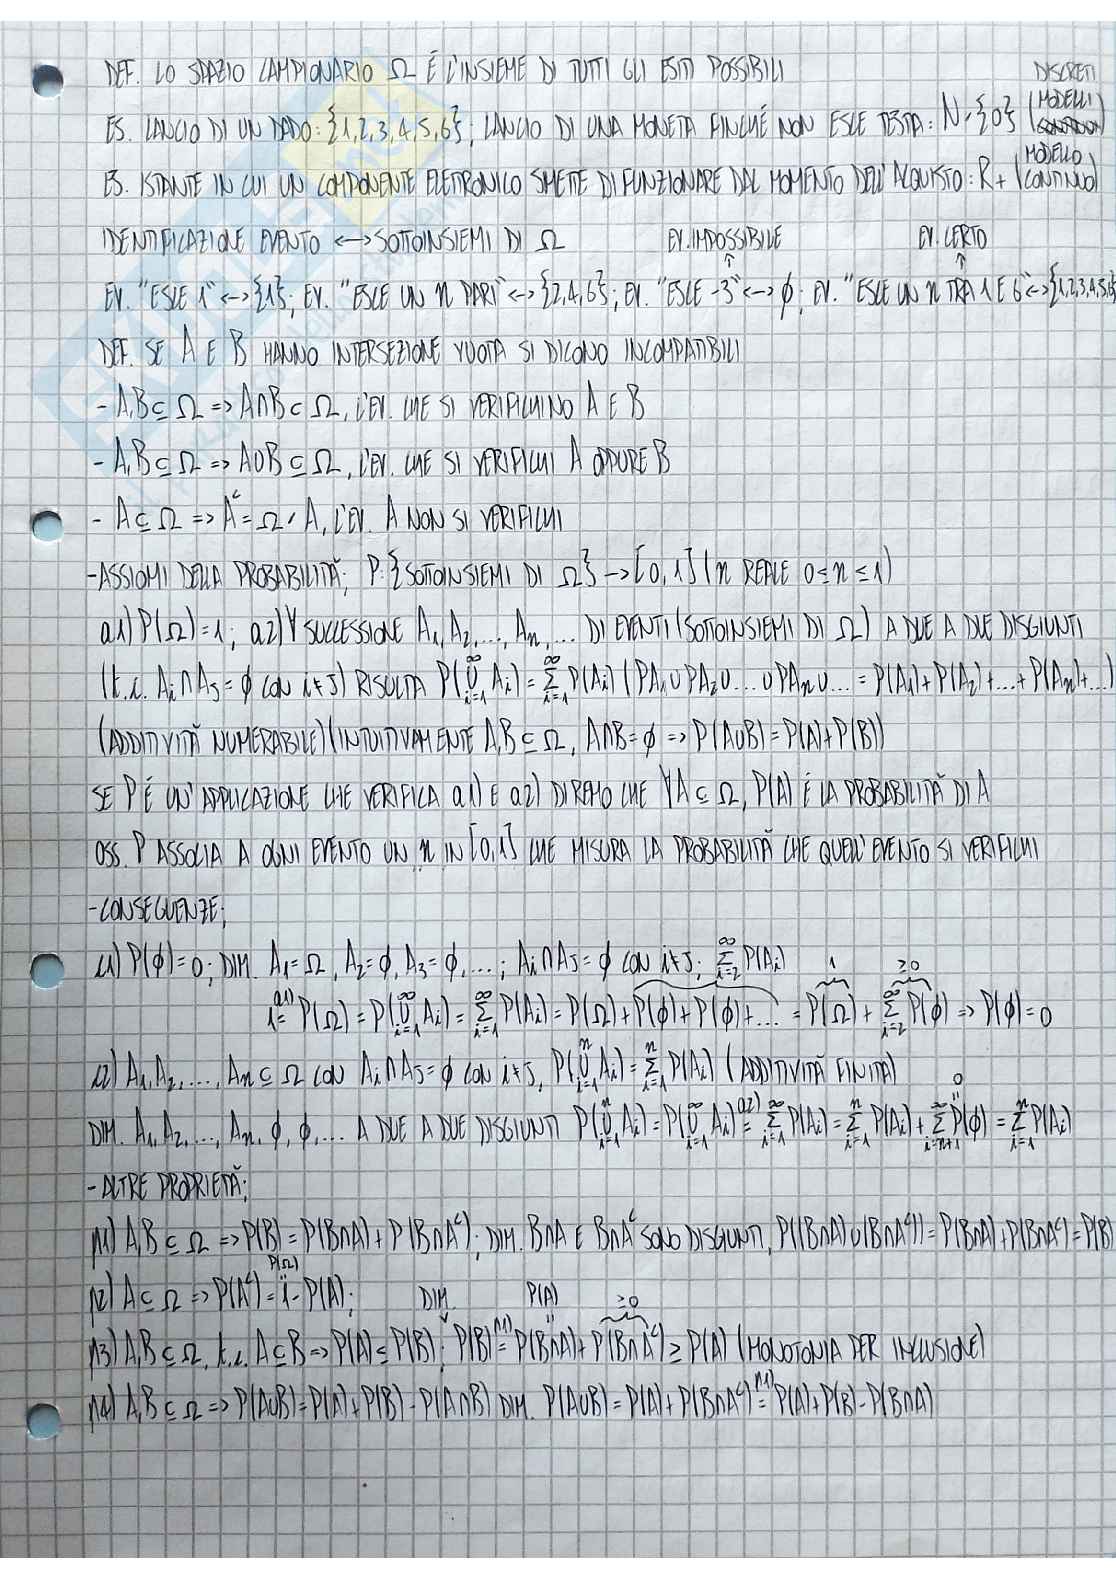 DEF. LO SPAZIO CAMPIONARIO Ω É L'INSIEME DI TUTTI GLI ESITI POSSIBILI
DISCRETI
ES. LANCIO DI UN DADO: {1,2,3,4,5,6}; LANCIO DI UNA MONETA FINCHÉ NON ESCE TESTA: N∖{0} (MODELLI
ES. ISTANTE IN CUI UN COMPONENTE ELETTRONICO SMETTE DI FUNZIONARE DAL MOMENTO DELL'ACQUISTO: R+ (MODELLO CONTINUO)
IDENTIFICAZIONE EVENTO <-> SOTTOINSIEMI DI Ω EV. IMPOSSIBILE EV. CERTO
↑ ↑
EV. "ESCE 1" <-> {1}; EV. "ESCE UN n PARI" <-> {2,4,6}; EV. "ESCE -3" <-> ϕ; EV. "ESCE UN n TRA 1 E 6" <-> {1,2,3,4,5,6}
DEF. SE A E B HANNO INTERSEZIONE VUOTA SI DICONO INCOMPATIBILI
- A,B ⊆ Ω => A∩B ⊂ Ω, L'EV. CHE SI VERIFICHINO A E B
- A,B ⊆ Ω => A∪B ⊆ Ω, L'EV. CHE SI VERIFICHI A OPPURE B
- A ⊆ Ω => Aᶜ = Ω∖A, L'EV. A NON SI VERIFICHI
- ASSIOMI DELLA PROBABILITÀ; P: {SOTTOINSIEMI DI Ω} -> [0,1] (n REALE 0≤n≤1)
a1) P(Ω)=1; a2) ∀ SUCCESSIONE A₁, A₂, ..., Aₙ, ... DI EVENTI (SOTTOINSIEMI DI Ω) A DUE A DUE DISGIUNTI
(t.c. Ai∩AJ=ϕ CON i≠J) RISULTA P(∪_{i=1}^∞ Ai) = Σ_{i=1}^∞ P(Ai) (PA₁∪PA₂∪...∪PAₙ∪... = P(A₁)+P(A₂)+...+P(Aₙ)+...)
(ADDITIVITÀ NUMERABILE) (INTUITIVAMENTE A,B ⊆ Ω, A∩B=ϕ => P(A∪B)=P(A)+P(B))
SE P É UN'APPLICAZIONE CHE VERIFICA a1) E a2) DIREMO CHE ∀A ⊆ Ω, P(A) É LA PROBABILITÀ DI A
OSS. P ASSOCIA A OGNI EVENTO UN n IN [0,1] CHE MISURA LA PROBABILITÀ CHE QUELL'EVENTO SI VERIFICHI
- CONSEGUENZE;
c1) P(ϕ)=0; DIM. A₁=Ω, A₂=ϕ, A₃=ϕ, ...; Ai∩AJ=ϕ CON i≠J; Σ_{i=2}^∞ P(Ai) 1 ≥0
1 =^{a1)} P(Ω) = P(∪_{i=1}^∞ Ai) = Σ_{i=1}^∞ P(Ai) = P(Ω)+P(ϕ)+P(ϕ)+... = P(Ω) + Σ_{i=2}^∞ P(ϕ) => P(ϕ)=0
c2) A₁, A₂, ..., Aₙ ⊆ Ω CON Ai∩AJ=ϕ CON i≠J, P(∪_{i=1}^n Ai) = Σ_{i=1}^n P(Ai) (ADDITIVITÀ FINITA) 0
DIM. A₁, A₂, ..., Aₙ, ϕ, ϕ, ... A DUE A DUE DISGIUNTI P(∪_{i=1}^n Ai) = P(∪_{i=1}^∞ Ai) =^{a2)} Σ_{i=1}^∞ P(Ai) = Σ_{i=1}^n P(Ai) + Σ_{i=n+1}^∞ P(ϕ) = Σ_{i=1}^n P(Ai)
- ALTRE PROPRIETÀ;
p1) A,B ⊆ Ω => P(B) = P(B∩A) + P(B∩Aᶜ); DIM. B∩A E B∩Aᶜ SONO DISGIUNTI, P((B∩A)∪(B∩Aᶜ)) = P(B∩A)+P(B∩Aᶜ) = P(B)
P(Ω)
p2) A ⊆ Ω => P(Aᶜ) = 1 - P(A); DIM. P(A) ≥0
p3) A,B ⊆ Ω, t.c. A ⊆ B => P(A) ≤ P(B); P(B) =^{p1)} P(B∩A) + P(B∩Aᶜ) ≥ P(A) (MONOTONIA PER INCLUSIONE)
p4) A,B ⊆ Ω => P(A∪B) = P(A)+P(B) - P(A∩B) DIM. P(A∪B) = P(A) + P(B∩Aᶜ) =^{p1)} P(A)+P(B) - P(B∩A)